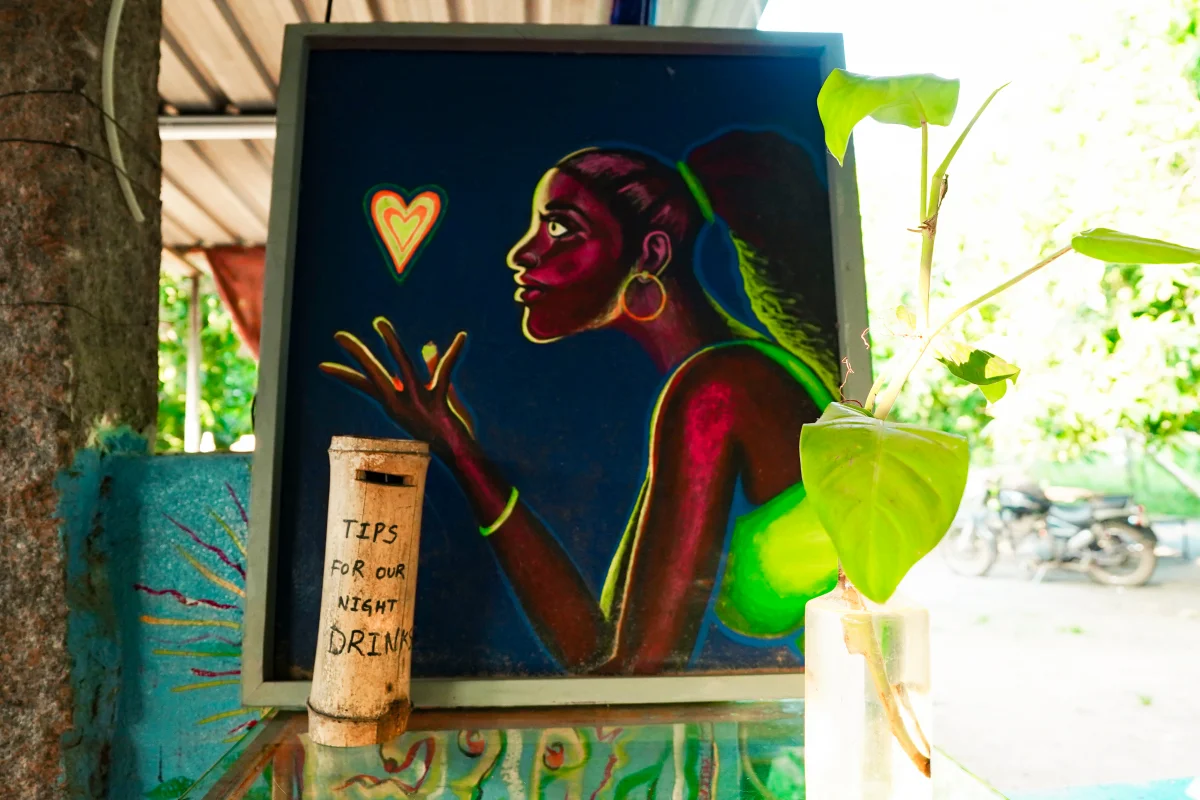 TIPS
FOR OUR
NIGHT
DRINKS